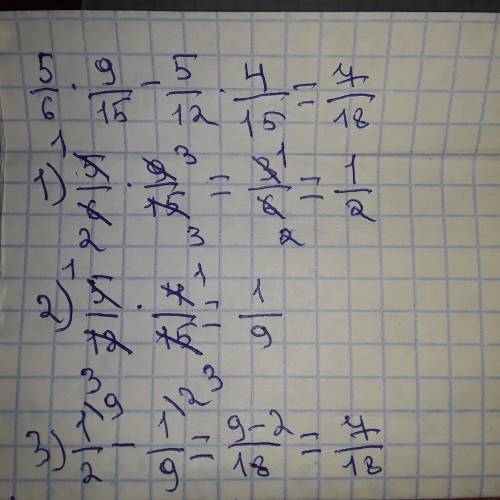 5/6 · 9/15 - 5/12 · 4/15 = 7/18
1) 5/6 · 9/15 = 3/6 = 1/2
2) 5/12 · 4/15 = 1/9
3) 1/2 - 1/9 = 9-2/18 = 7/18